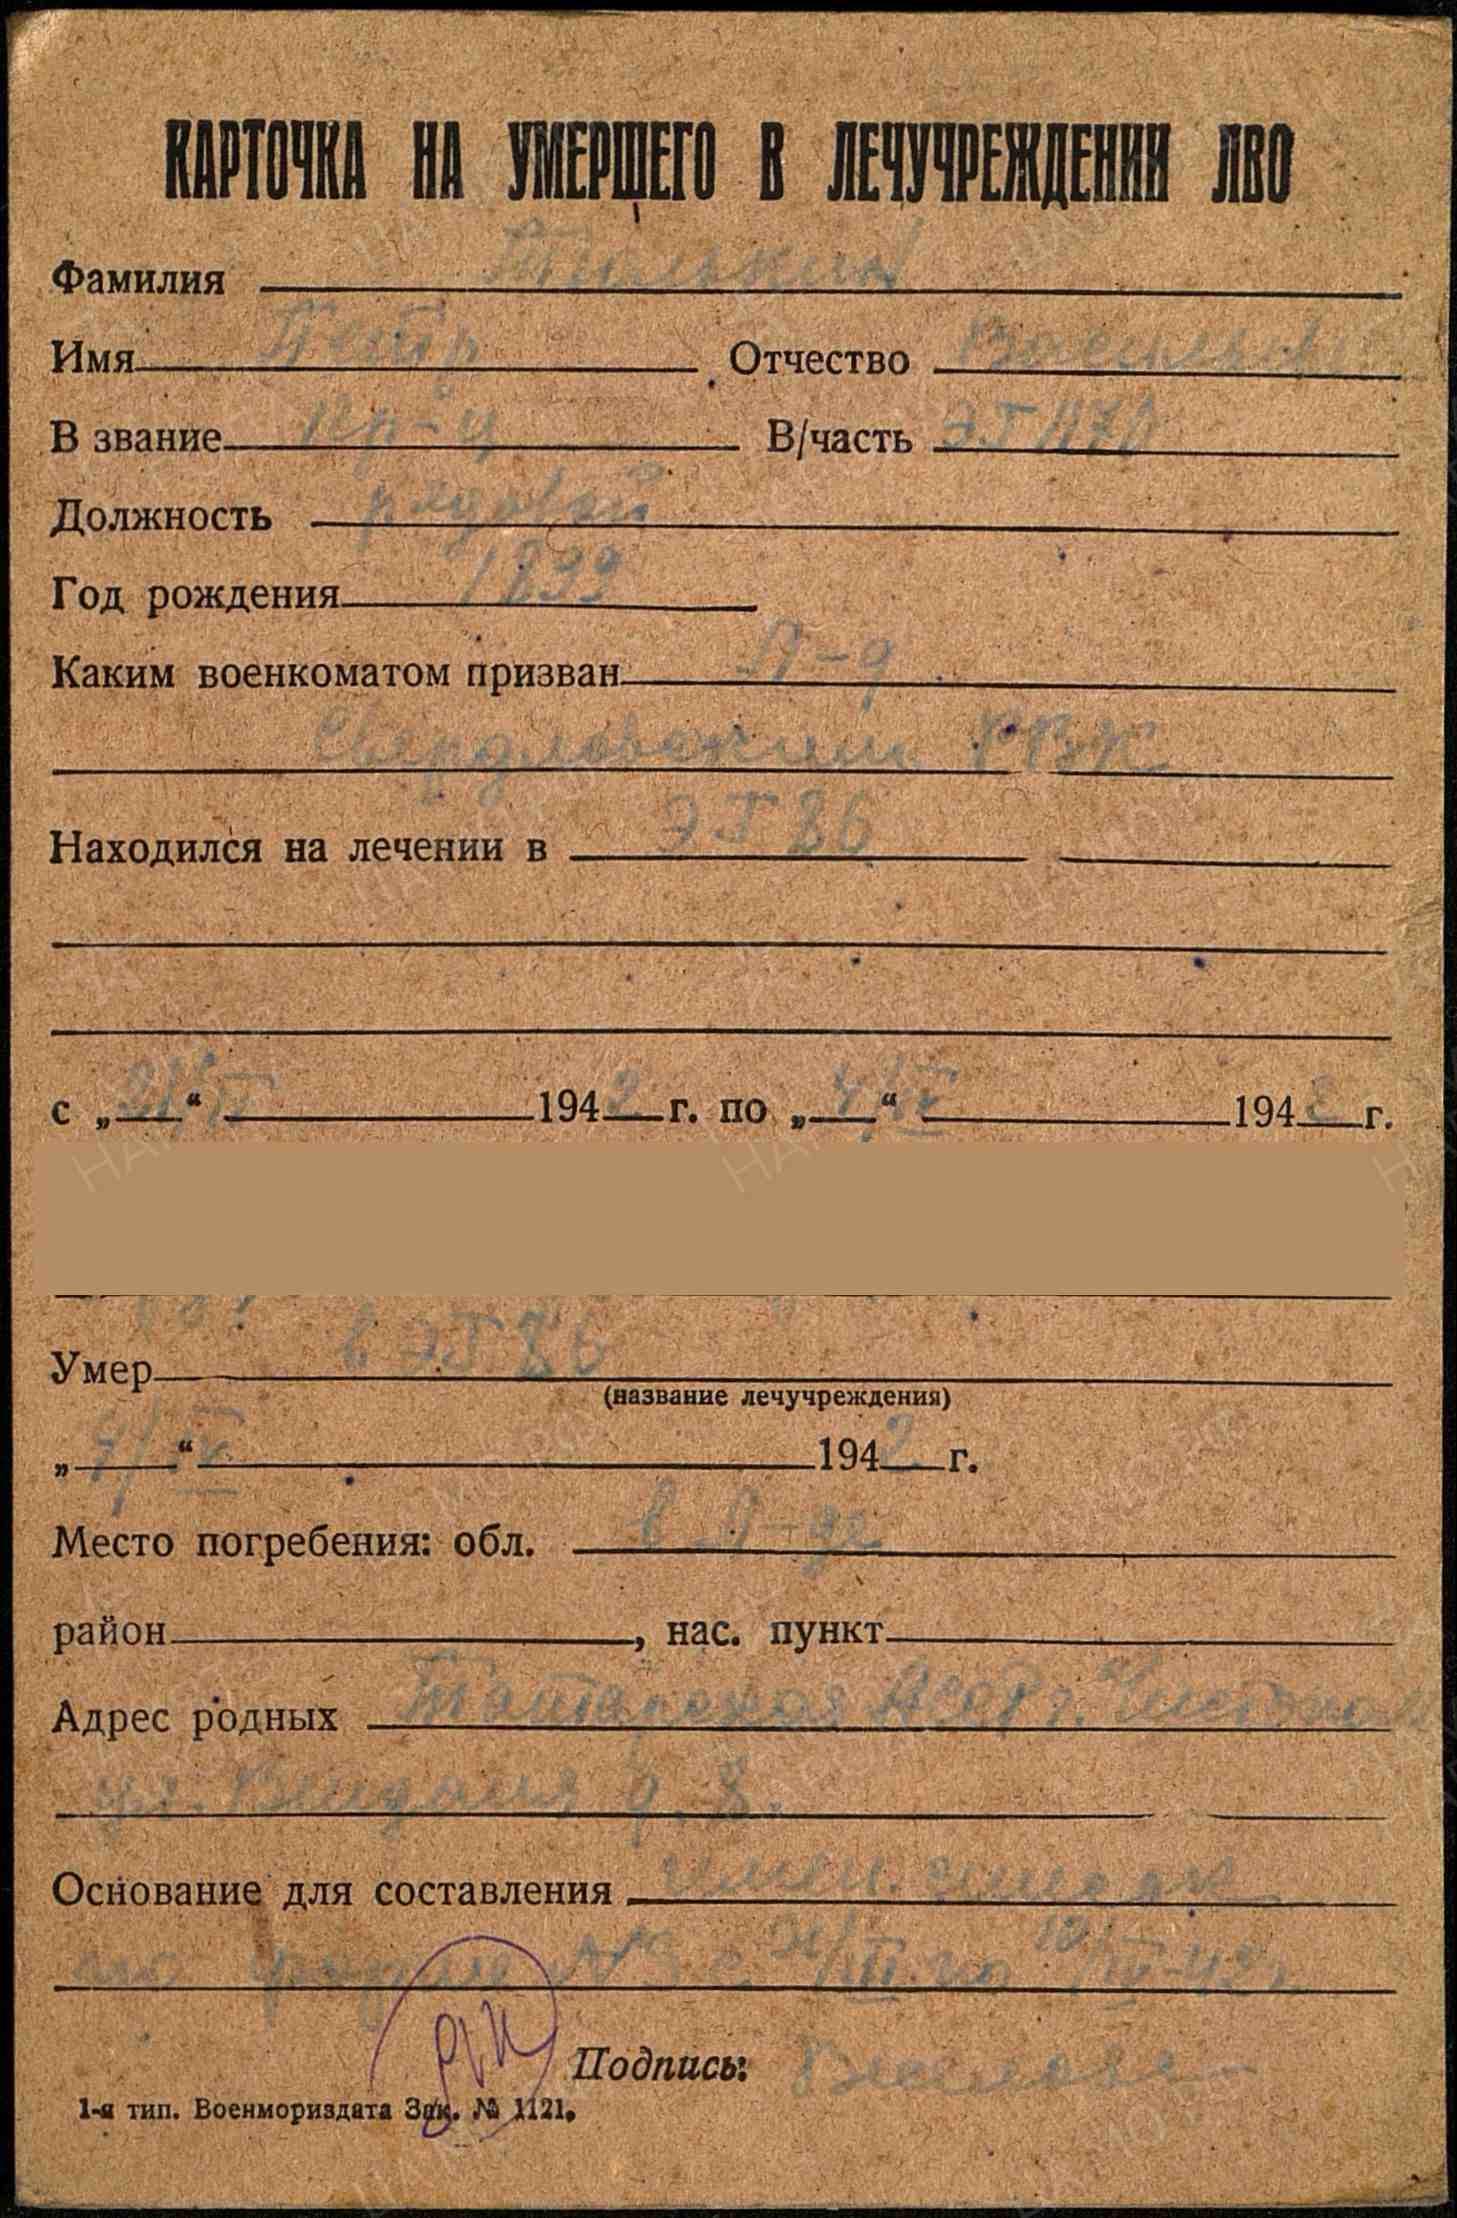 КАРТОЧКА НА УМЕРШЕГО В ЛЕЧУЧРЕЖДЕНИИ ЛВО
Фамилия Тюлькин
Имя Петр Отчество
В звание кр-ц В/часть ЭГ 1170
Должность рядовой
Год рождения 1899
Каким военкоматом призван Л-д
Свердловским РВК
Находился на лечении в ЭГ 86
с „21“ 1942 г. по „ “ IV 1942 г.
Умер в ЭГ 86
(название лечучреждения)
„ “ IV 1942 г.
Место погребения: обл. в Л-де
район , нас. пункт
Адрес родных Татарская АССР г. Чистополь
ул. д. 8.
Основание для составления имен. список
по форме №3 с по IV-42г.
Подпись:
1-я тип. Военмориздата Зак. № 1121.